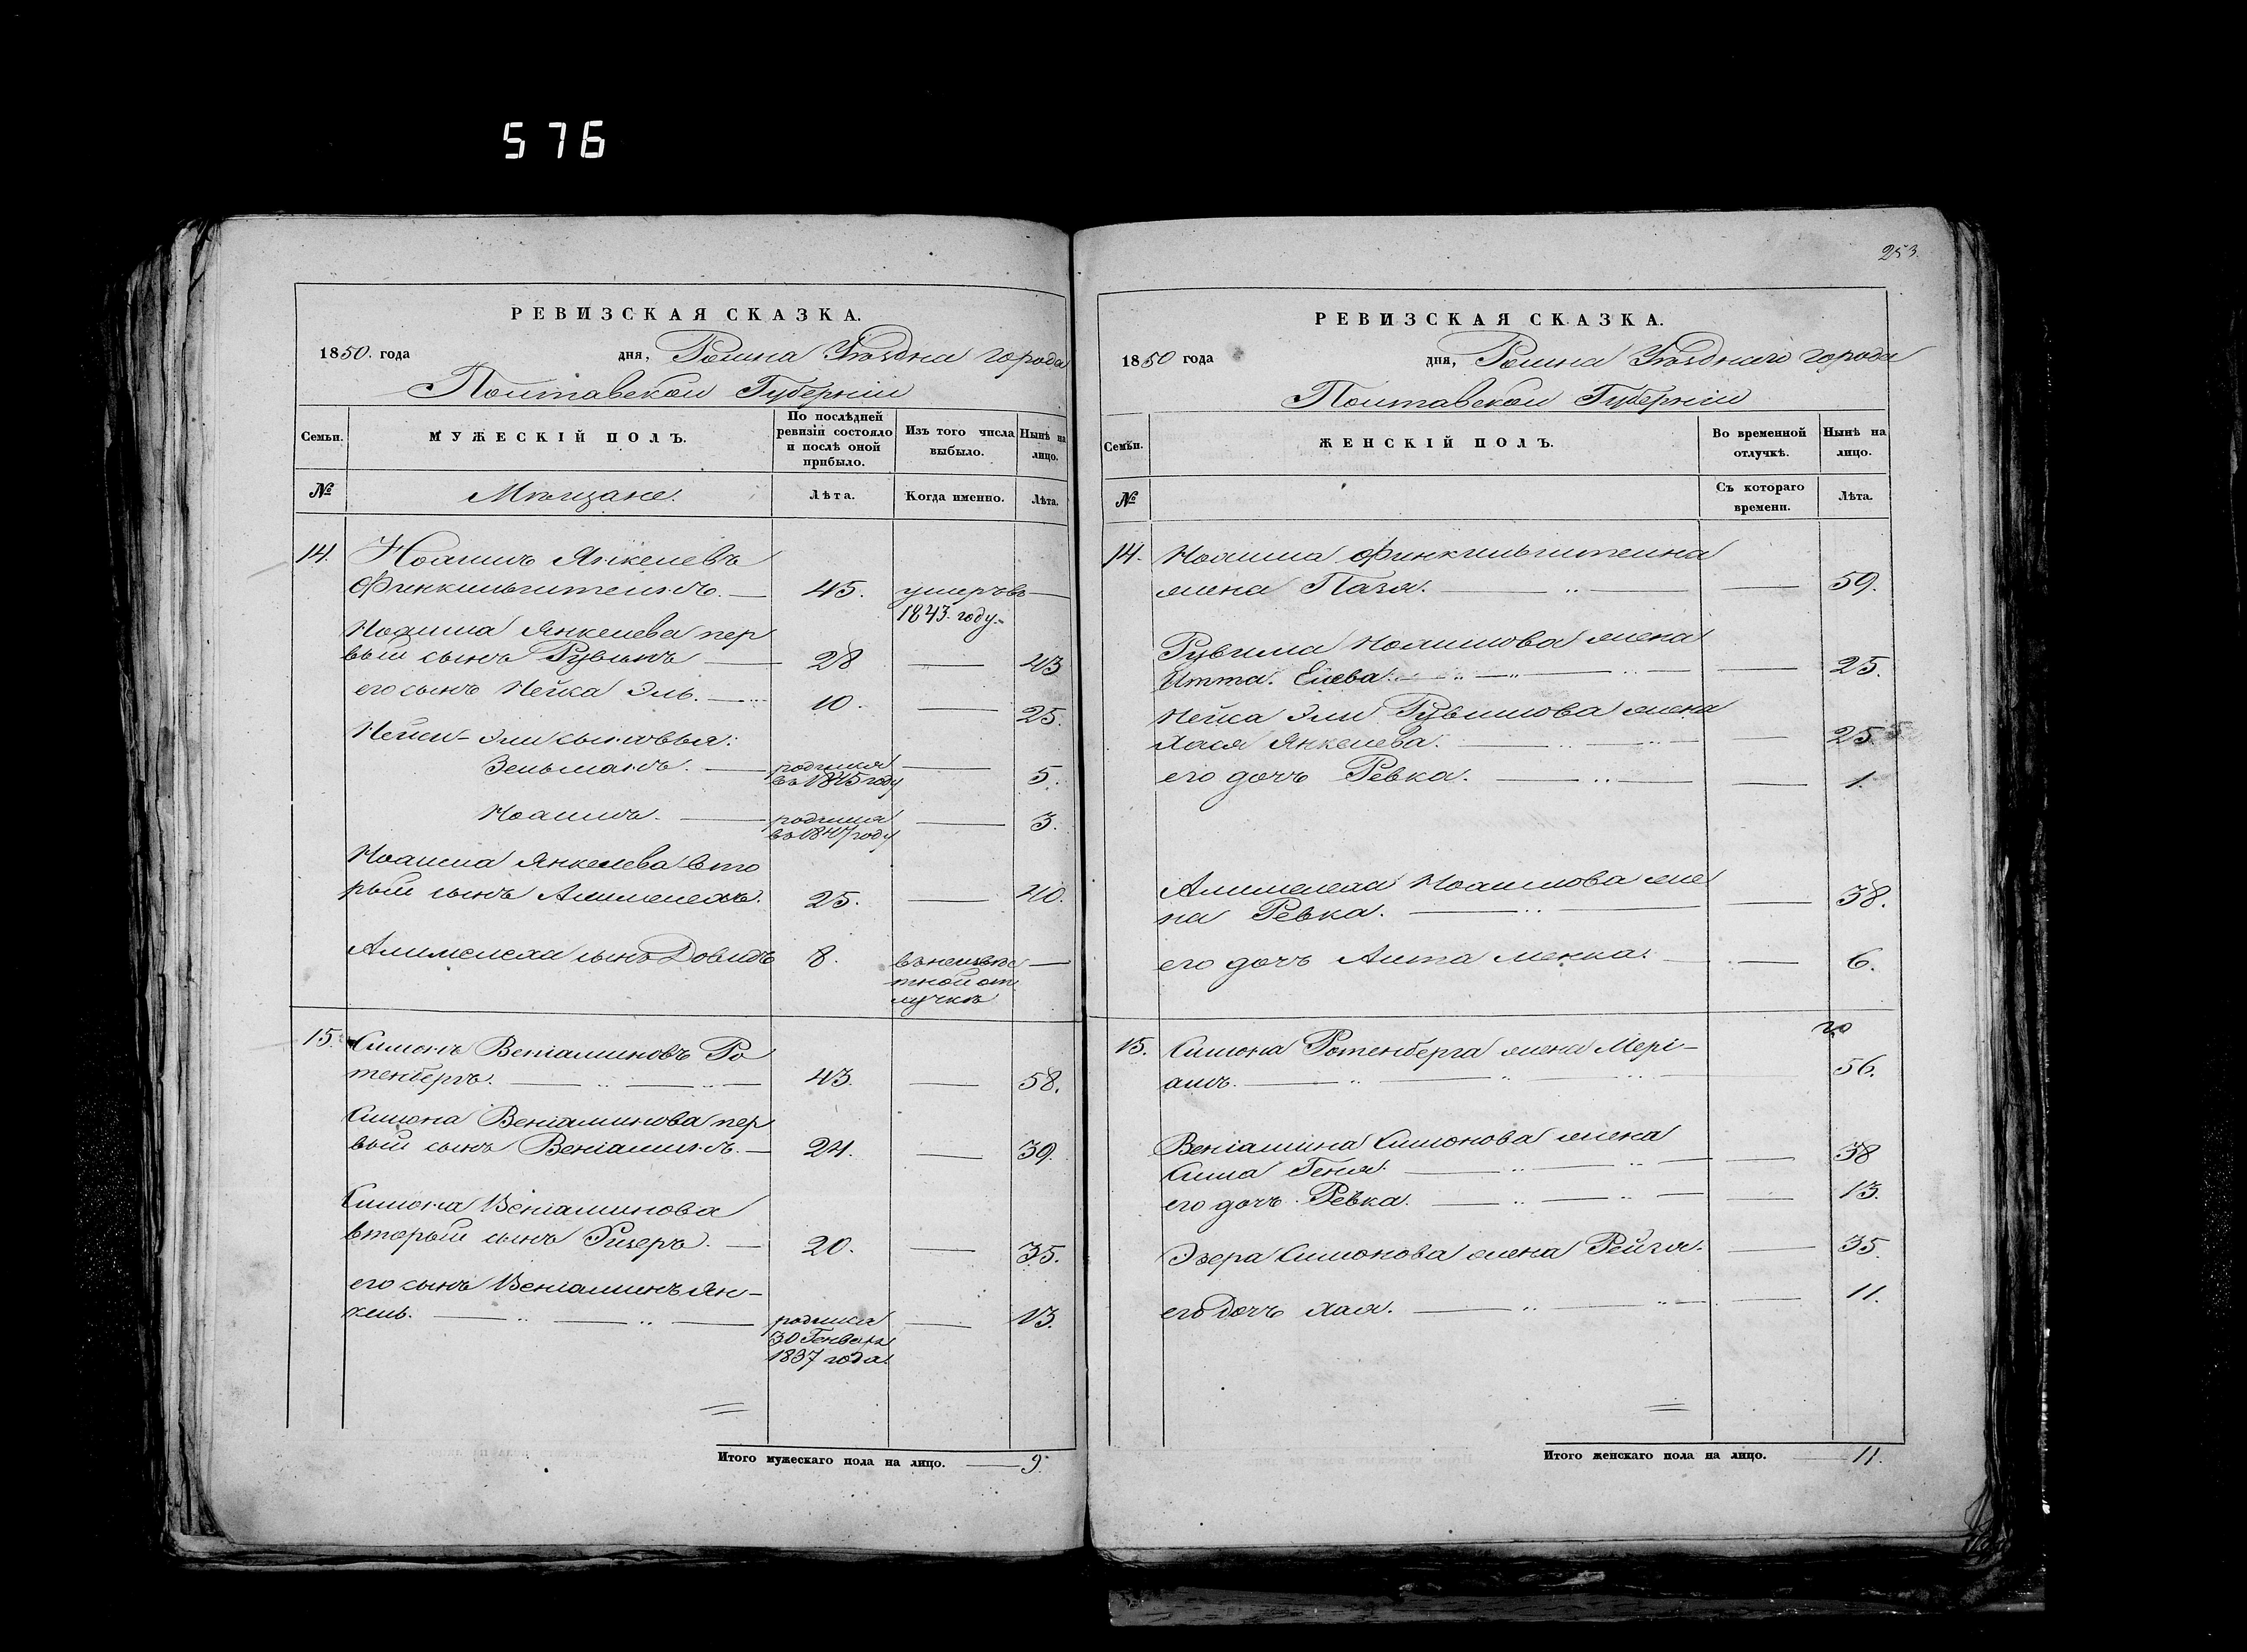 576
РЕВИЗСКАЯ СКАЗКА.
1850. года дня, Ромна Уѣздна города
Полтавской Губерніи
Семьи.
МУЖЕСКІЙ ПОЛЪ.
По послѣдней ревизіи состояло и послѣ оной прибыло.
Изъ того числа выбыло.
Нынѣ на лицо.
№
Мѣщане.
Лѣта.
Когда именно.
Лѣта.
14. Хоаимъ Янкелевъ
Финкильштейнъ. 45. умеръ въ
1843. году.
Хоаима Янкелева пер
вый сынъ Рувинъ 28 43
его сынъ Лейка Эль. 10. 25.
Эли сыновья:
Зельманъ. родился въ 1845 году 5.
Хоаимъ. родился въ 1847 году 3.
Хоаима Янкелева вто
рый сынъ Алимелехъ. 25. 40.
Алимелеха сынъ Довидъ 8. въ неизвѣс
тной от
лучкѣ
15. Симонъ Веніаминовъ Ро
тенбергъ. 43. 58.
Симона Веніаминова пер
вый сынъ Веніаминъ. 24. 39.
Симона Веніаминова
вторый сынъ 20. 35.
его сынъ Веніаминъ Ян-
кель. родился 13.
30 Генваря
1837 года.
Итого мужескаго пола на лицо. 9.
253.
РЕВИЗСКАЯ СКАЗКА.
1850 года дня, Ромна Уѣзднаго города
Полтавской Губерніи
Семьи.
ЖЕНСКІЙ ПОЛЪ.
Во временной отлучкѣ.
Нынѣ на лицо.
№
Съ котораго времени.
Лѣта.
14. Хоаима Финкильштейна
жена Пазя. 59.
Рувима Хоаимова жена
Итта. Елева. 25.
Эли Рувимова жена
Хася Янкелева. 25.
его дочь Ревка. 1.
Алимелеха Хоаимова же
на Ревка. 38.
его дочь Менка. 6.
15. Симона Ротенберга жена Мері-
амъ. 56.
Веніамина Симонова жена
Сима Геня. 38
его дочь Ревка. 13.
Эзера Симонова жена Рейза. 35.
его дочь Хая. 11.
Итого женскаго пола на лицо. 11.